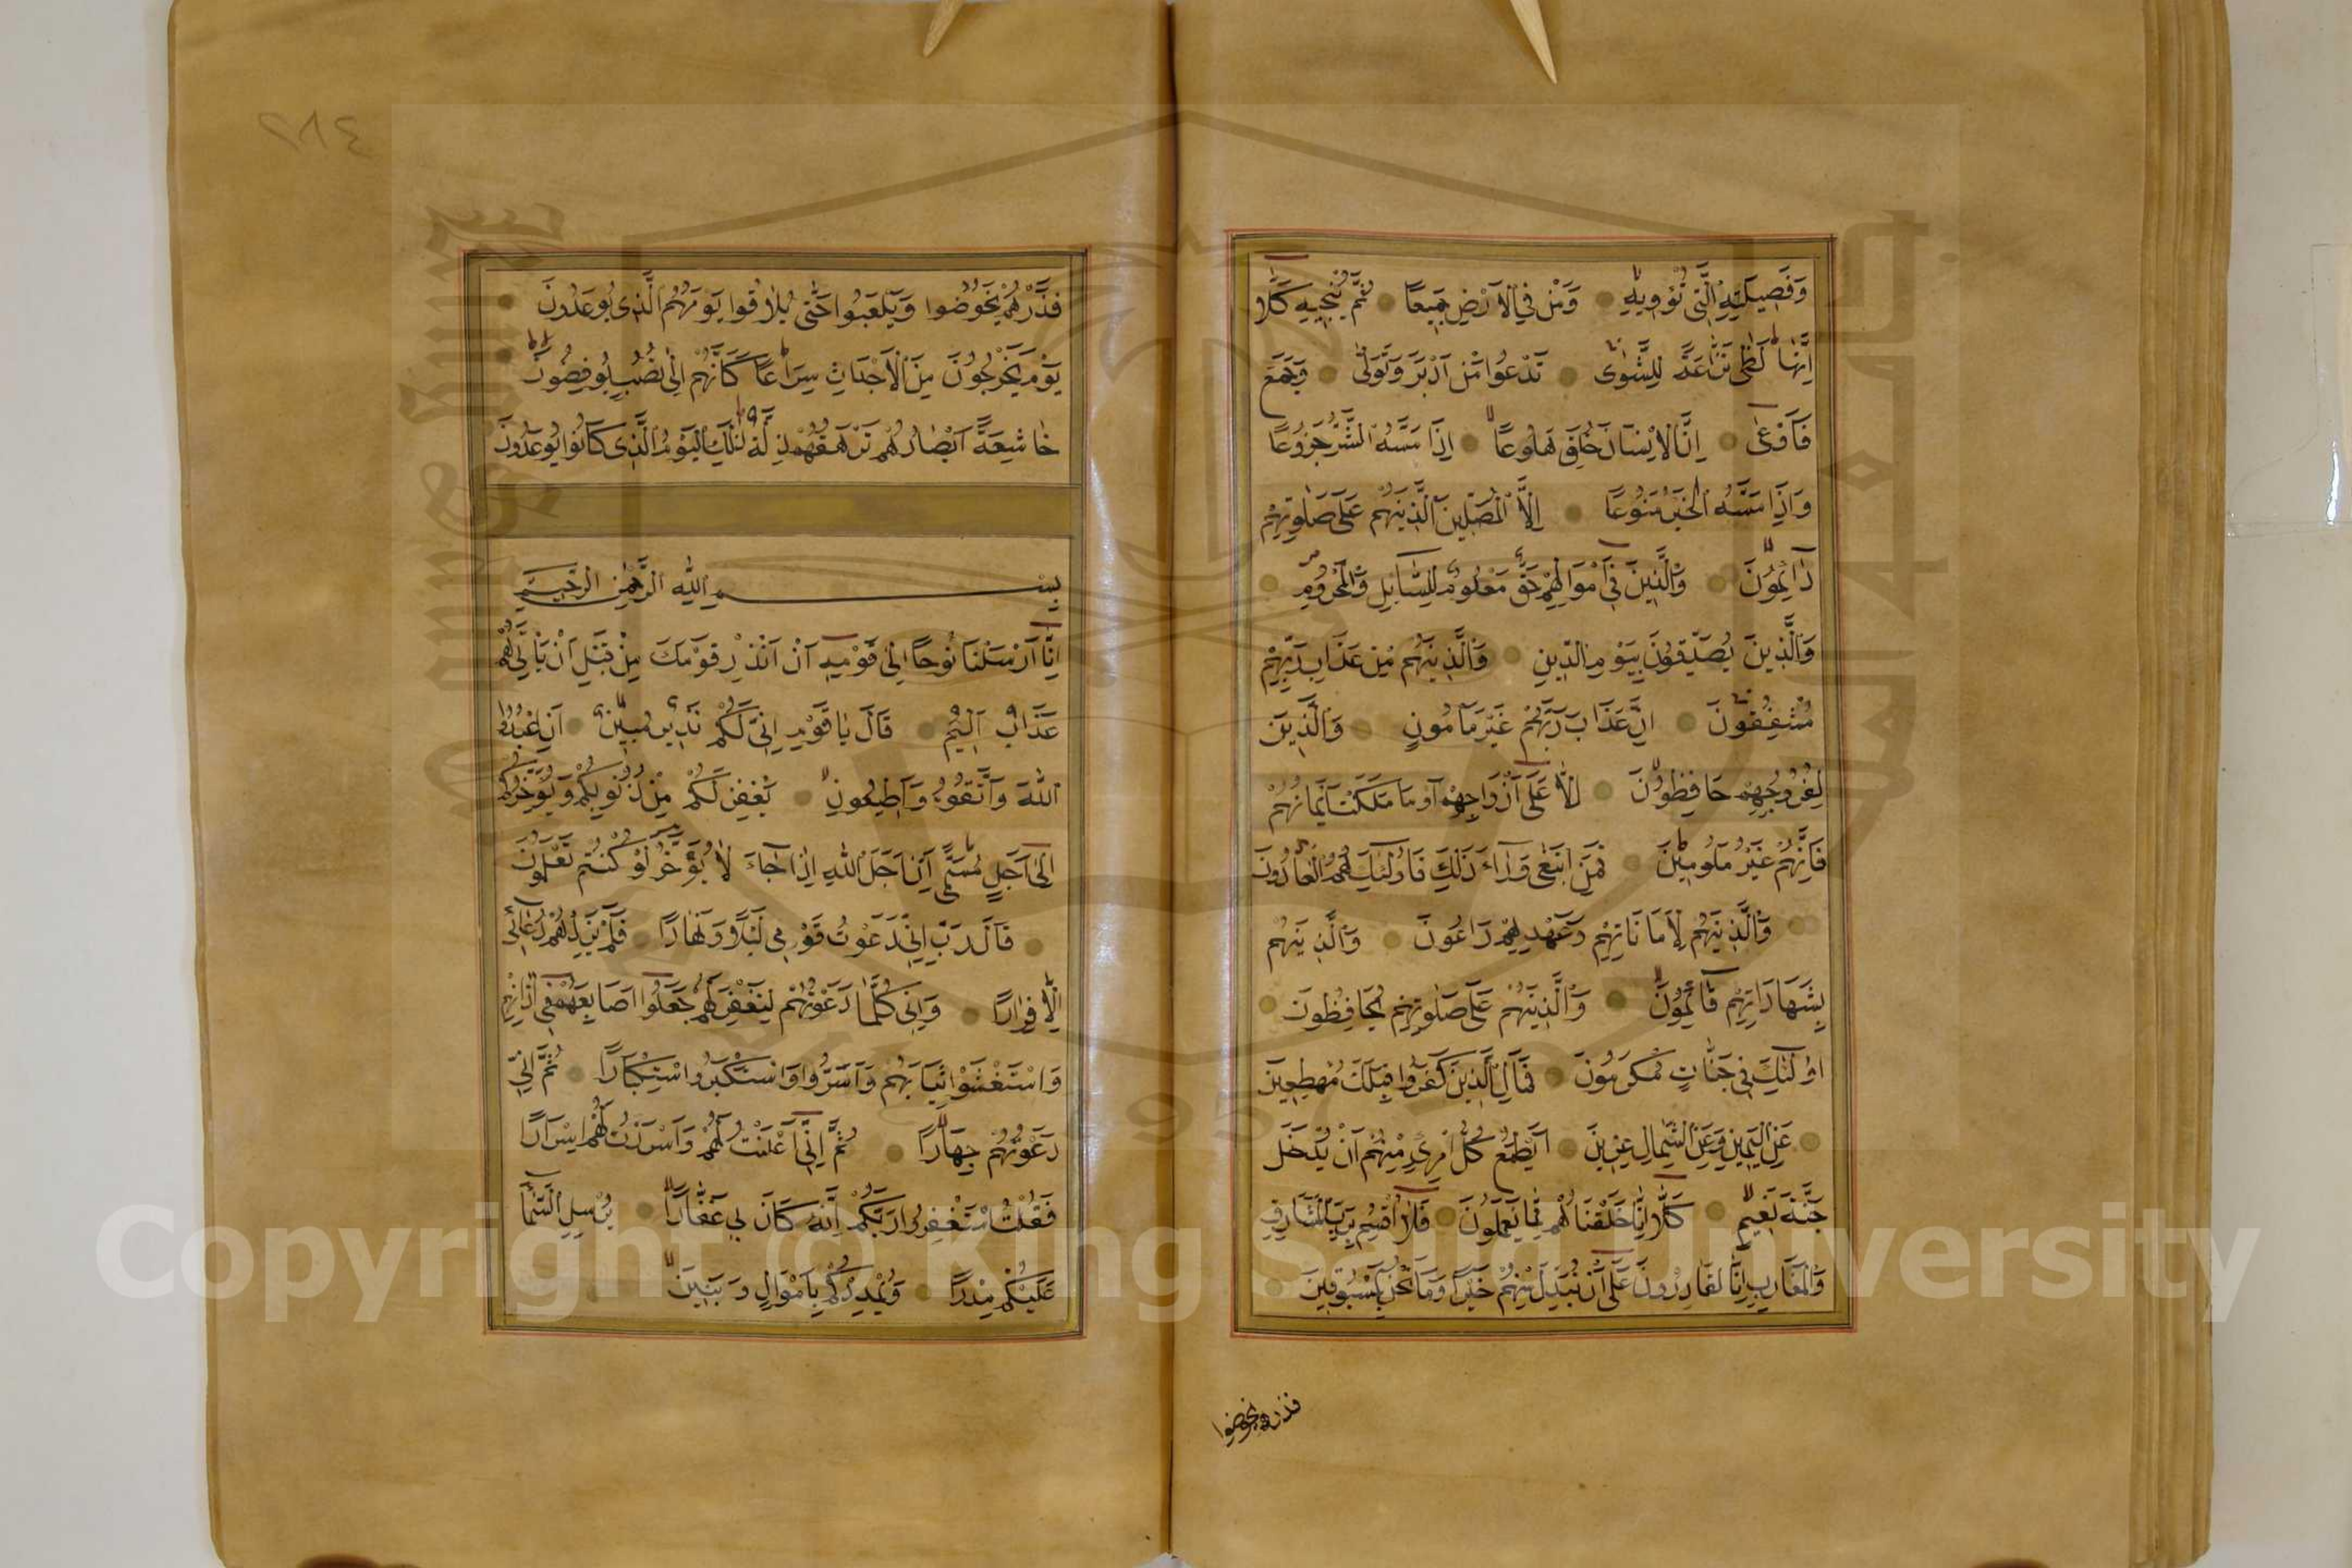 وَفَصِيلَتِهِ الَّتِي تُؤْوِيهِ وَمَنْ فِي الْاَرْضِ جَمِيعًا ثُمَّ يُنْجِيهِ كَلَّا
اِنَّهَا لَظٰى نَزَّاعَةً لِلشَّوٰى تَدْعُوا مَنْ اَدْبَرَ وَتَوَلّٰى وَجَمَعَ
فَاَوْعٰى اِنَّ الْاِنْسَانَ خُلِقَ هَلُوعًا اِذَا مَسَّهُ الشَّرُّ جَزُوعًا
وَاِذَا مَسَّهُ الْخَيْرُ مَنُوعًا اِلَّا الْمُصَلِّينَ الَّذِينَ هُمْ عَلٰى صَلٰوتِهِمْ
دَائِمُونَ وَالَّذِينَ فِي اَمْوَالِهِمْ حَقٌّ مَعْلُومٌ لِلسَّائِلِ وَالْمَحْرُومِ
وَالَّذِينَ يُصَدِّقُونَ بِيَوْمِ الدِّينِ وَالَّذِينَ هُمْ مِنْ عَذَابِ رَبِّهِمْ
مُشْفِقُونَ اِنَّ عَذَابَ رَبِّهِمْ غَيْرُ مَأْمُونٍ وَالَّذِينَ
لِفُرُوجِهِمْ حَافِظُونَ اِلَّا عَلٰى اَزْوَاجِهِمْ اَوْ مَا مَلَكَتْ اَيْمَانُهُمْ
فَاِنَّهُمْ غَيْرُ مَلُومِينَ فَمَنِ ابْتَغٰى وَرَاءَ ذٰلِكَ فَاُولٰئِكَ هُمُ الْعَادُونَ
وَالَّذِينَ هُمْ لِاَمَانَاتِهِمْ وَعَهْدِهِمْ رَاعُونَ وَالَّذِينَ هُمْ
بِشَهَادَاتِهِمْ قَائِمُونَ وَالَّذِينَ هُمْ عَلٰى صَلٰوتِهِمْ يُحَافِظُونَ
اُولٰئِكَ فِي جَنَّاتٍ مُكْرَمُونَ فَمَالِ الَّذِينَ كَفَرُوا قِبَلَكَ مُهْطِعِينَ
عَنِ الْيَمِينِ وَعَنِ الشِّمَالِ عِزِينَ اَيَطْمَعُ كُلُّ امْرِئٍ مِنْهُمْ اَنْ يُدْخَلَ
جَنَّةَ نَعِيمٍ كَلَّا اِنَّا خَلَقْنَاهُمْ مِمَّا يَعْلَمُونَ فَلَا اُقْسِمُ بِرَبِّ الْمَشَارِقِ
وَالْمَغَارِبِ اِنَّا لَقَادِرُونَ عَلٰى اَنْ نُبَدِّلَ مِنْهُمْ خَيْرًا وَمَا نَحْنُ بِمَسْبُوقِينَ
فذرهم يخوضوا
٢٨٤
فَذَرْهُمْ يَخُوضُوا وَيَلْعَبُوا حَتّٰى يُلَاقُوا يَوْمَهُمُ الَّذِي يُوعَدُونَ
يَوْمَ يَخْرُجُونَ مِنَ الْاَجْدَاثِ سِرَاعًا كَاَنَّهُمْ اِلٰى نُصُبٍ يُوفِضُونَ
خَاشِعَةً اَبْصَارُهُمْ تَرْهَقُهُمْ ذِلَّةٌ ذٰلِكَ الْيَوْمُ الَّذِي كَانُوا يُوعَدُونَ
بِسْمِ اللّٰهِ الرَّحْمٰنِ الرَّحِيمِ
اِنَّا اَرْسَلْنَا نُوحًا اِلٰى قَوْمِهِ اَنْ اَنْذِرْ قَوْمَكَ مِنْ قَبْلِ اَنْ يَأْتِيَهُمْ
عَذَابٌ اَلِيمٌ قَالَ يَا قَوْمِ اِنِّي لَكُمْ نَذِيرٌ مُبِينٌ اَنِ اعْبُدُوا
اللّٰهَ وَاتَّقُوهُ وَاَطِيعُونِ يَغْفِرْ لَكُمْ مِنْ ذُنُوبِكُمْ وَيُؤَخِّرْكُمْ
اِلٰى اَجَلٍ مُسَمًّى اِنَّ اَجَلَ اللّٰهِ اِذَا جَاءَ لَا يُؤَخَّرُ لَوْ كُنْتُمْ تَعْلَمُونَ
قَالَ رَبِّ اِنِّي دَعَوْتُ قَوْمِي لَيْلًا وَنَهَارًا فَلَمْ يَزِدْهُمْ دُعَائِي
اِلَّا فِرَارًا وَاِنِّي كُلَّمَا دَعَوْتُهُمْ لِتَغْفِرَ لَهُمْ جَعَلُوا اَصَابِعَهُمْ فِي اٰذَانِهِمْ
وَاسْتَغْشَوْا ثِيَابَهُمْ وَاَصَرُّوا وَاسْتَكْبَرُوا اسْتِكْبَارًا ثُمَّ اِنِّي
دَعَوْتُهُمْ جِهَارًا ثُمَّ اِنِّي اَعْلَنْتُ لَهُمْ وَاَسْرَرْتُ لَهُمْ اِسْرَارًا
فَقُلْتُ اسْتَغْفِرُوا رَبَّكُمْ اِنَّهُ كَانَ غَفَّارًا يُرْسِلِ السَّمَاءَ
عَلَيْكُمْ مِدْرَارًا وَيُمْدِدْكُمْ بِاَمْوَالٍ وَبَنِينَ
Copyright © King Saud University